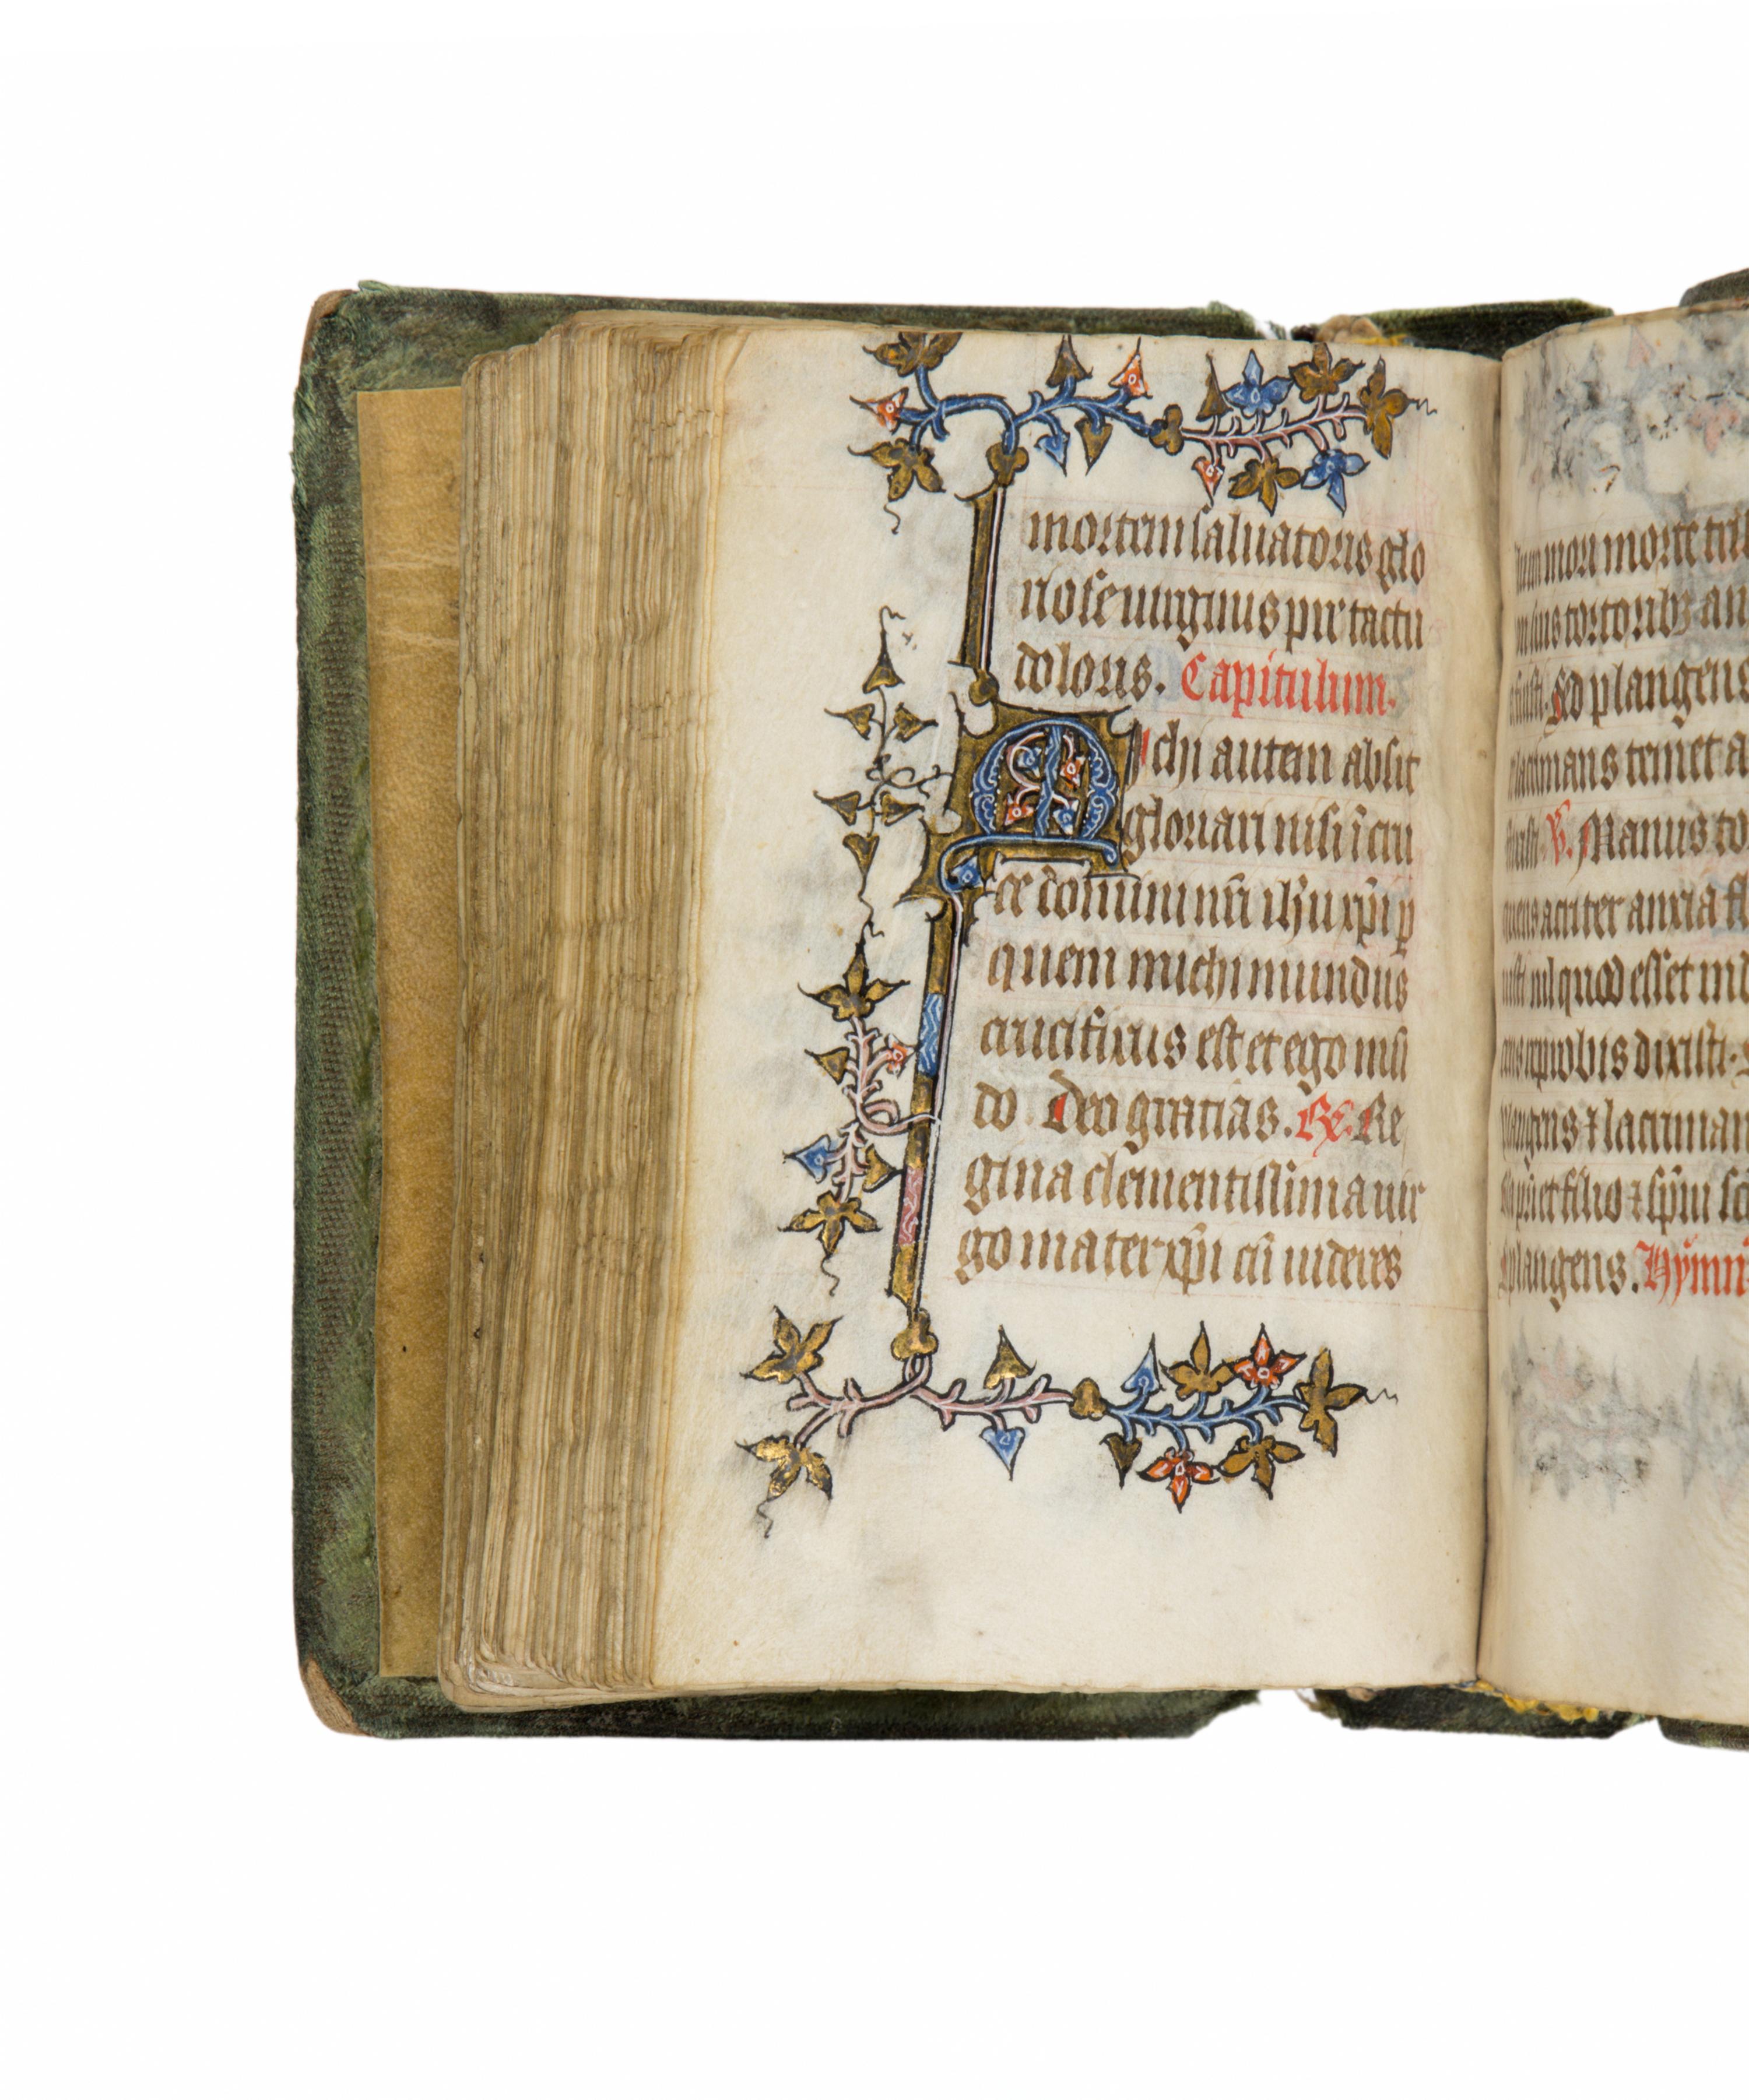 mortem saluatoris glo
riose uirginis pie tactu
doloris. Capitulum.
Michi autem absit
gloriari nisi ī cru
ce domini nr̄i ih̄u xp̄i p
quem michi mundus
crucifixus est et ego mū
do Deo gratias. R. Re
gina clementissima uir
go mater xp̄i cū uideres
mori morte
tortorib; an
Sed plangens
lacrimans temet a
V. Manus to
acriter anxia fl
nil quod esset in
dixisti.
plangens ⁊ lacriman
filio ⁊ sp̄iu sc̄
plangens. Hymn